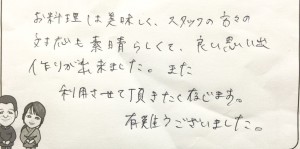 お料理は美味しく、スタッフの方々の
対応も素晴らしくて、良い思い出
作りが出来ました。また
利用させて頂きたく存じます。
有難うございました。